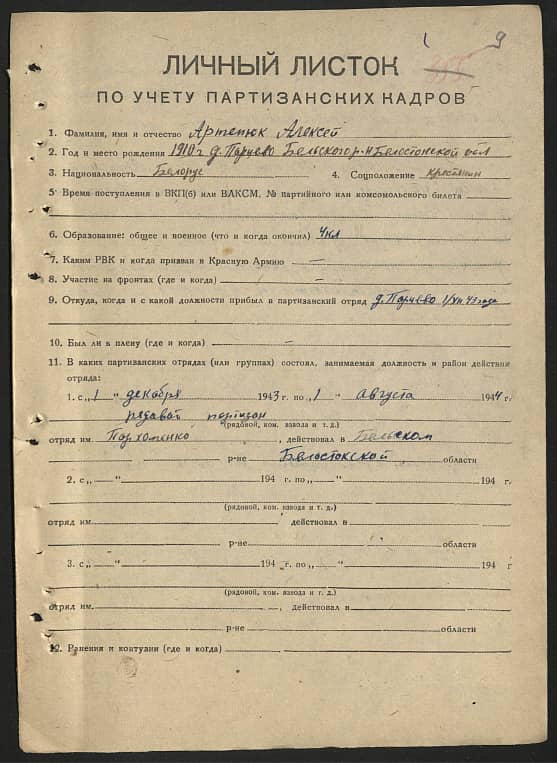 9
ЛИЧНЫЙ ЛИСТОК
ПО УЧЕТУ ПАРТИЗАНСКИХ КАДРОВ
1. Фамилия, имя и отчество Артепюк Алексей
2. Год и место рождения 1910 г д. Парцево Бельского р-н Белостокской обл
3. Национальность Белорус 4. Соцположение Крестянин
5 Время поступления в ВКП(б) или ВЛКСМ, № партийного или комсомольского билета
6. Образование: общее и военное (что и когда окончил) 4 кл
7. Каким РВК и когда призван в Красную Армию —
8. Участие на фронтах (где и когда) —
9. Откуда, когда и с какой должности прибыл в партизанский отряд д. Парцево 1/XII 43 года
10. Был ли в плену (где и когда) —
11. В каких партизанских отрядах (или группах) состоял, занимаемая должность и район действия
отряда:
1. с „1" декабря 1943 г. по „1" августа 1944 г.
рядавой партизан
(рядовой, ком. взвода и т. д.)
отряд им Пархоменко, действовал в Бельском
р-не Белостокской области
2. с „ " 194 г. по „ " 194 г.
(рядовой, ком. взвода и т. д.)
отряд им. , действовал в
р-не области
3. с „ " 194 г. по „ " 194 г
(рядовой, ком. взвода и т. д.)
отряд им. , действовал в
р-не области
12. Ранения и контузии (где и когда)